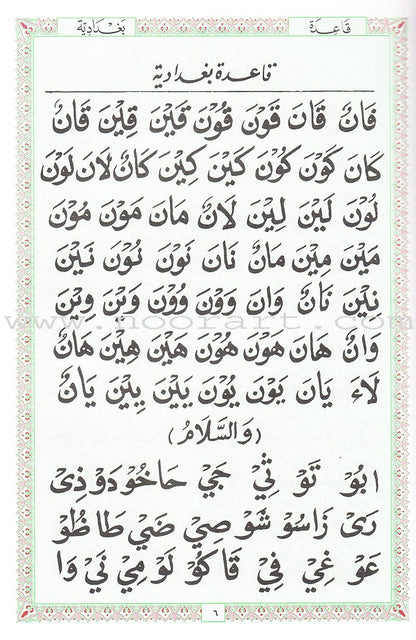 قَاعِدَة بَغْدَادِيَّة
قاعدة بغدادية
فَانٌ قَانَ قَوْنَ قُوْنَ قَيْنَ قِيْنَ قَانٌ
كَانَ كَوْنَ كُوْنَ كَيْنَ كِيْنَ كَانٌ لَانَ لَوْنَ
لُوْنَ لَيْنَ لِيْنَ لَانٌ مَانَ مَوْنَ مُوْنَ
مَيْنَ مِيْنَ مَانٌ نَانَ نَوْنَ نُوْنَ نَيْنَ
نِيْنَ نَانٌ وَانَ وَوْنَ وُوْنَ وَيْنَ وِيْنَ
وَانٌ هَانَ هَوْنَ هُوْنَ هَيْنَ هِيْنَ هَانٌ
لَاءَ يَانَ يَوْنَ يُوْنَ يَيْنَ يِيْنَ يَانٌ
(وَالسَّلَامُ)
ابُوْ تَوْ ثِيْ جَيْ حَاخُوْدَوْذِيْ
رَيْ زَاسُوْ شَوْ صِيْ ضَيْ طَاظُوْ
عَوْ غِيْ فِيْ قَاكُوْ لَوْ مِيْ نَيْ وَا
٦
www.noorart.com